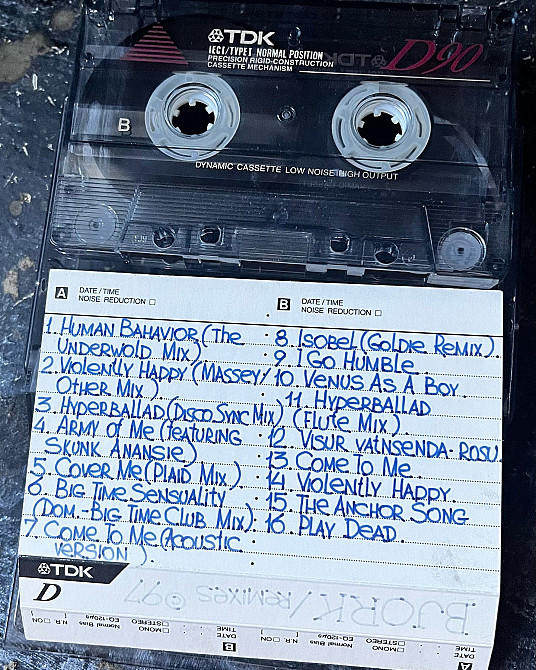 TDK
IECI/TYPE I NORMAL POSITION
PRECISION RIGID-CONSTRUCTION
CASSETTE MECHANISM
D90
B
DYNAMIC CASSETTE LOW NOISE HIGH OUTPUT
A DATE/TIME
NOISE REDUCTION
B DATE/TIME
NOISE REDUCTION
1. HUMAN BAHAVIOR (The
UNDERWOLD MIX)
2. Violently HAPPY (MASSEY/
OTHER MIX).
3. HYPERBALLAD (DISCO SYNC MIX)
4. ARMY OF ME (FEATURING
SKUNK ANANSIE)
5. COVER ME (PLAID MIX.)
6. BIG TIME SENSUALITY
(DOM.-BIG TIME CLUB MIX)
7. COME TO ME (ACOUSTIC
VERSION).
8. ISOBEL (GOLDIE REMIX).
9. I GO HUMBLE
10. VENUS AS A BOY.
11. HYPERBALLAD
(FLUTE MIX).
12. VISUR VATNSENDA-ROSU.
13. COME TO ME
14. VIOLENTLY HAPPY.
15. THE ANCHOR SONG
16. PLAY DEAD
TDK
D
BJORK/REMIXES ©97
A
DATE
TIME
N.R. ON
STEREO
MONO
Normal Bias
EQ-120μs
B
DATE
TIME
N.R. ON
STEREO
MONO
Normal Bias
EQ-120μs